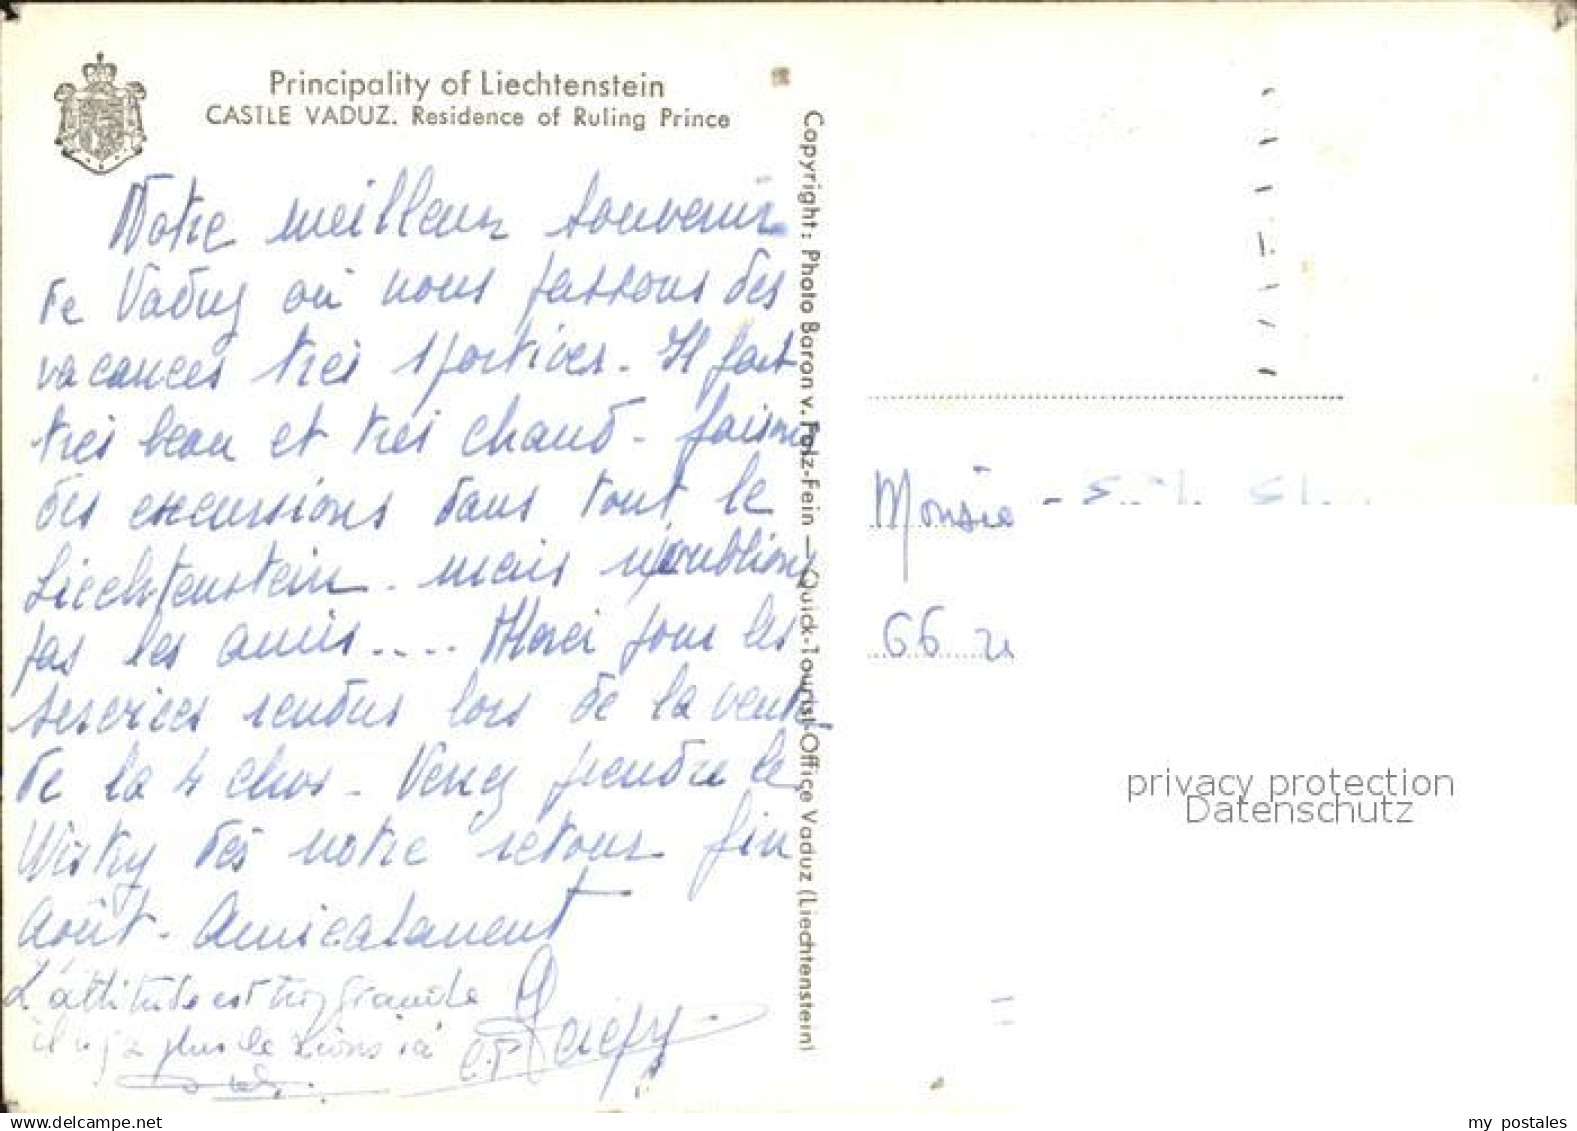 Principality of Liechtenstein
CASTLE VADUZ. Residence of Ruling Prince
Notre meilleur souvenir
de Vaduz où nous passons des
vacances très sportives. Il fait
très beau et très chaud - faisons
des excursions dans tout le
Liechtenstein - mais n'oublions
pas les amis.... Merci pour les
services rendus lors de la vente
de la 4 chvs - Venez prendre le
Wisky dès notre retour fin
Août - Amicalement
L'altitude est très grande
il n'y a plus de
Copyright: Photo Baron v. Falz-Fein — Quick-Tourist-Office Vaduz (Liechtenstein)
Monsie
66
privacy protection
Datenschutz
my postales